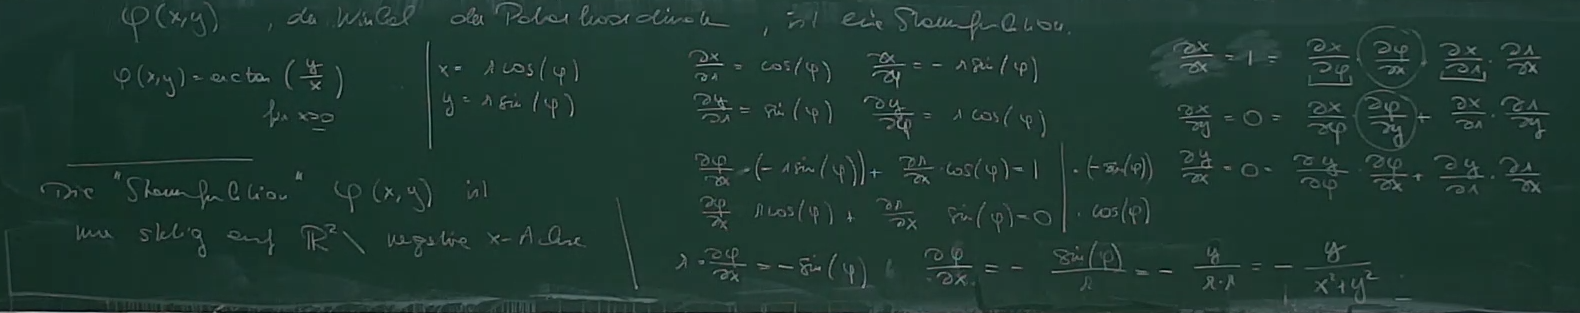 φ(x,y) , der Winkel der Polarkoordinaten , ist eine Stammfunktion.
φ(x,y) = arctan (y/x)
für x>0
x = r cos(φ)
y = r sin(φ)
Die "Stammfunktion" φ(x,y) ist
nur stetig auf ℝ² \ negative x-Achse
∂x/∂r = cos(φ) ∂x/∂φ = - r sin(φ)
∂y/∂r = sin(φ) ∂y/∂φ = r cos(φ)
∂φ/∂x · (- r sin(φ)) + ∂r/∂x · cos(φ) = 1 | · (-sin(φ))
∂φ/∂x r cos(φ) + ∂r/∂x sin(φ) = 0 | · cos(φ)
r · ∂φ/∂x = - sin(φ) , ∂φ/∂x = - sin(φ)/r = - y/(r·r) = - y/(x²+y²)
∂x/∂x = 1 = ∂x/∂φ · ∂φ/∂x ∂x/∂r · ∂r/∂x
∂x/∂y = 0 = ∂x/∂φ ∂φ/∂y + ∂x/∂r · ∂r/∂y
∂y/∂x = 0 = ∂y/∂φ · ∂φ/∂x + ∂y/∂r · ∂r/∂x